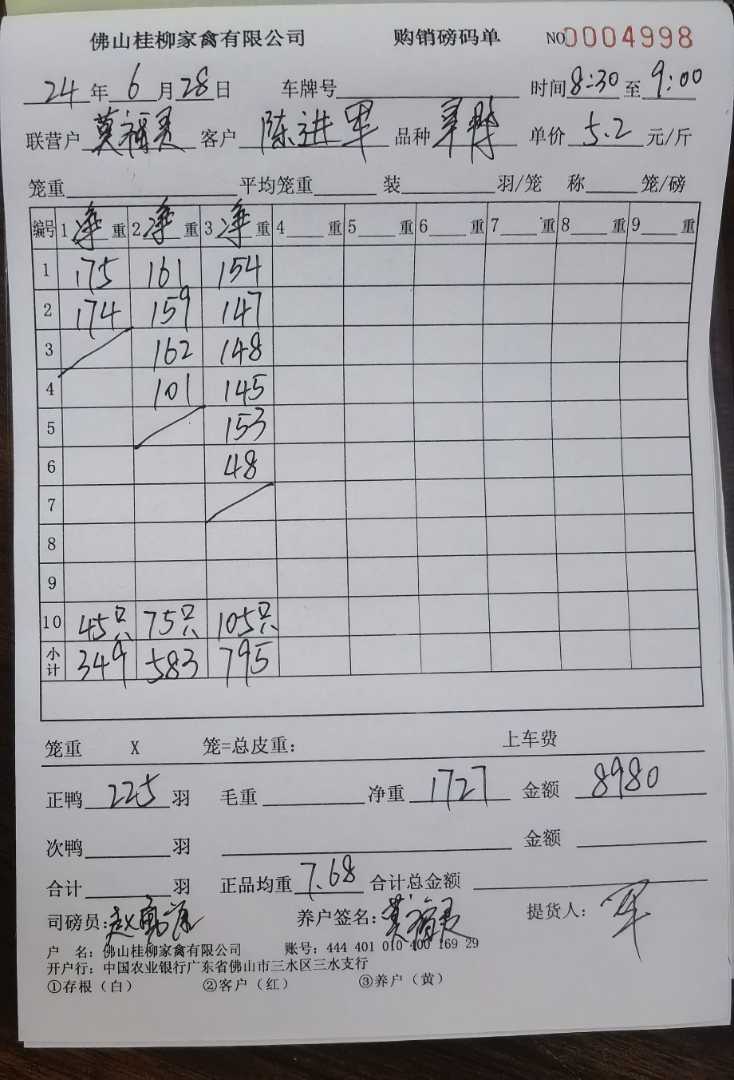 佛山桂柳家禽有限公司 购销磅码单 NO0004998
24年6月28日 车牌号 时间8:30至9:00
联营户 莫福灵 客户 陈进军 品种 单价 5.2 元/斤
笼重 平均笼重 装 羽/笼 称 笼/磅
编号 1净重 2净重 3净重 4重 5重 6重 7重 8重 9重
1 175 161 154
2 174 159 147
3 162 148
4 101 145
5 153
6 48
7
8
9
10 45只 75只 105只
小计 349 583 795
笼重 X 笼=总皮重: 上车费
正鸭 225 羽 毛重 净重 1727 金额 8980
次鸭 羽 金额
合计 羽 正品均重 7.68 合计总金额
司磅员: 养户签名: 莫福灵 提货人: 军
户 名: 佛山桂柳家禽有限公司 账号: 444 401 010 400 169 29
开户行: 中国农业银行广东省佛山市三水区三水支行
①存根(白) ②客户(红) ③养户(黄)